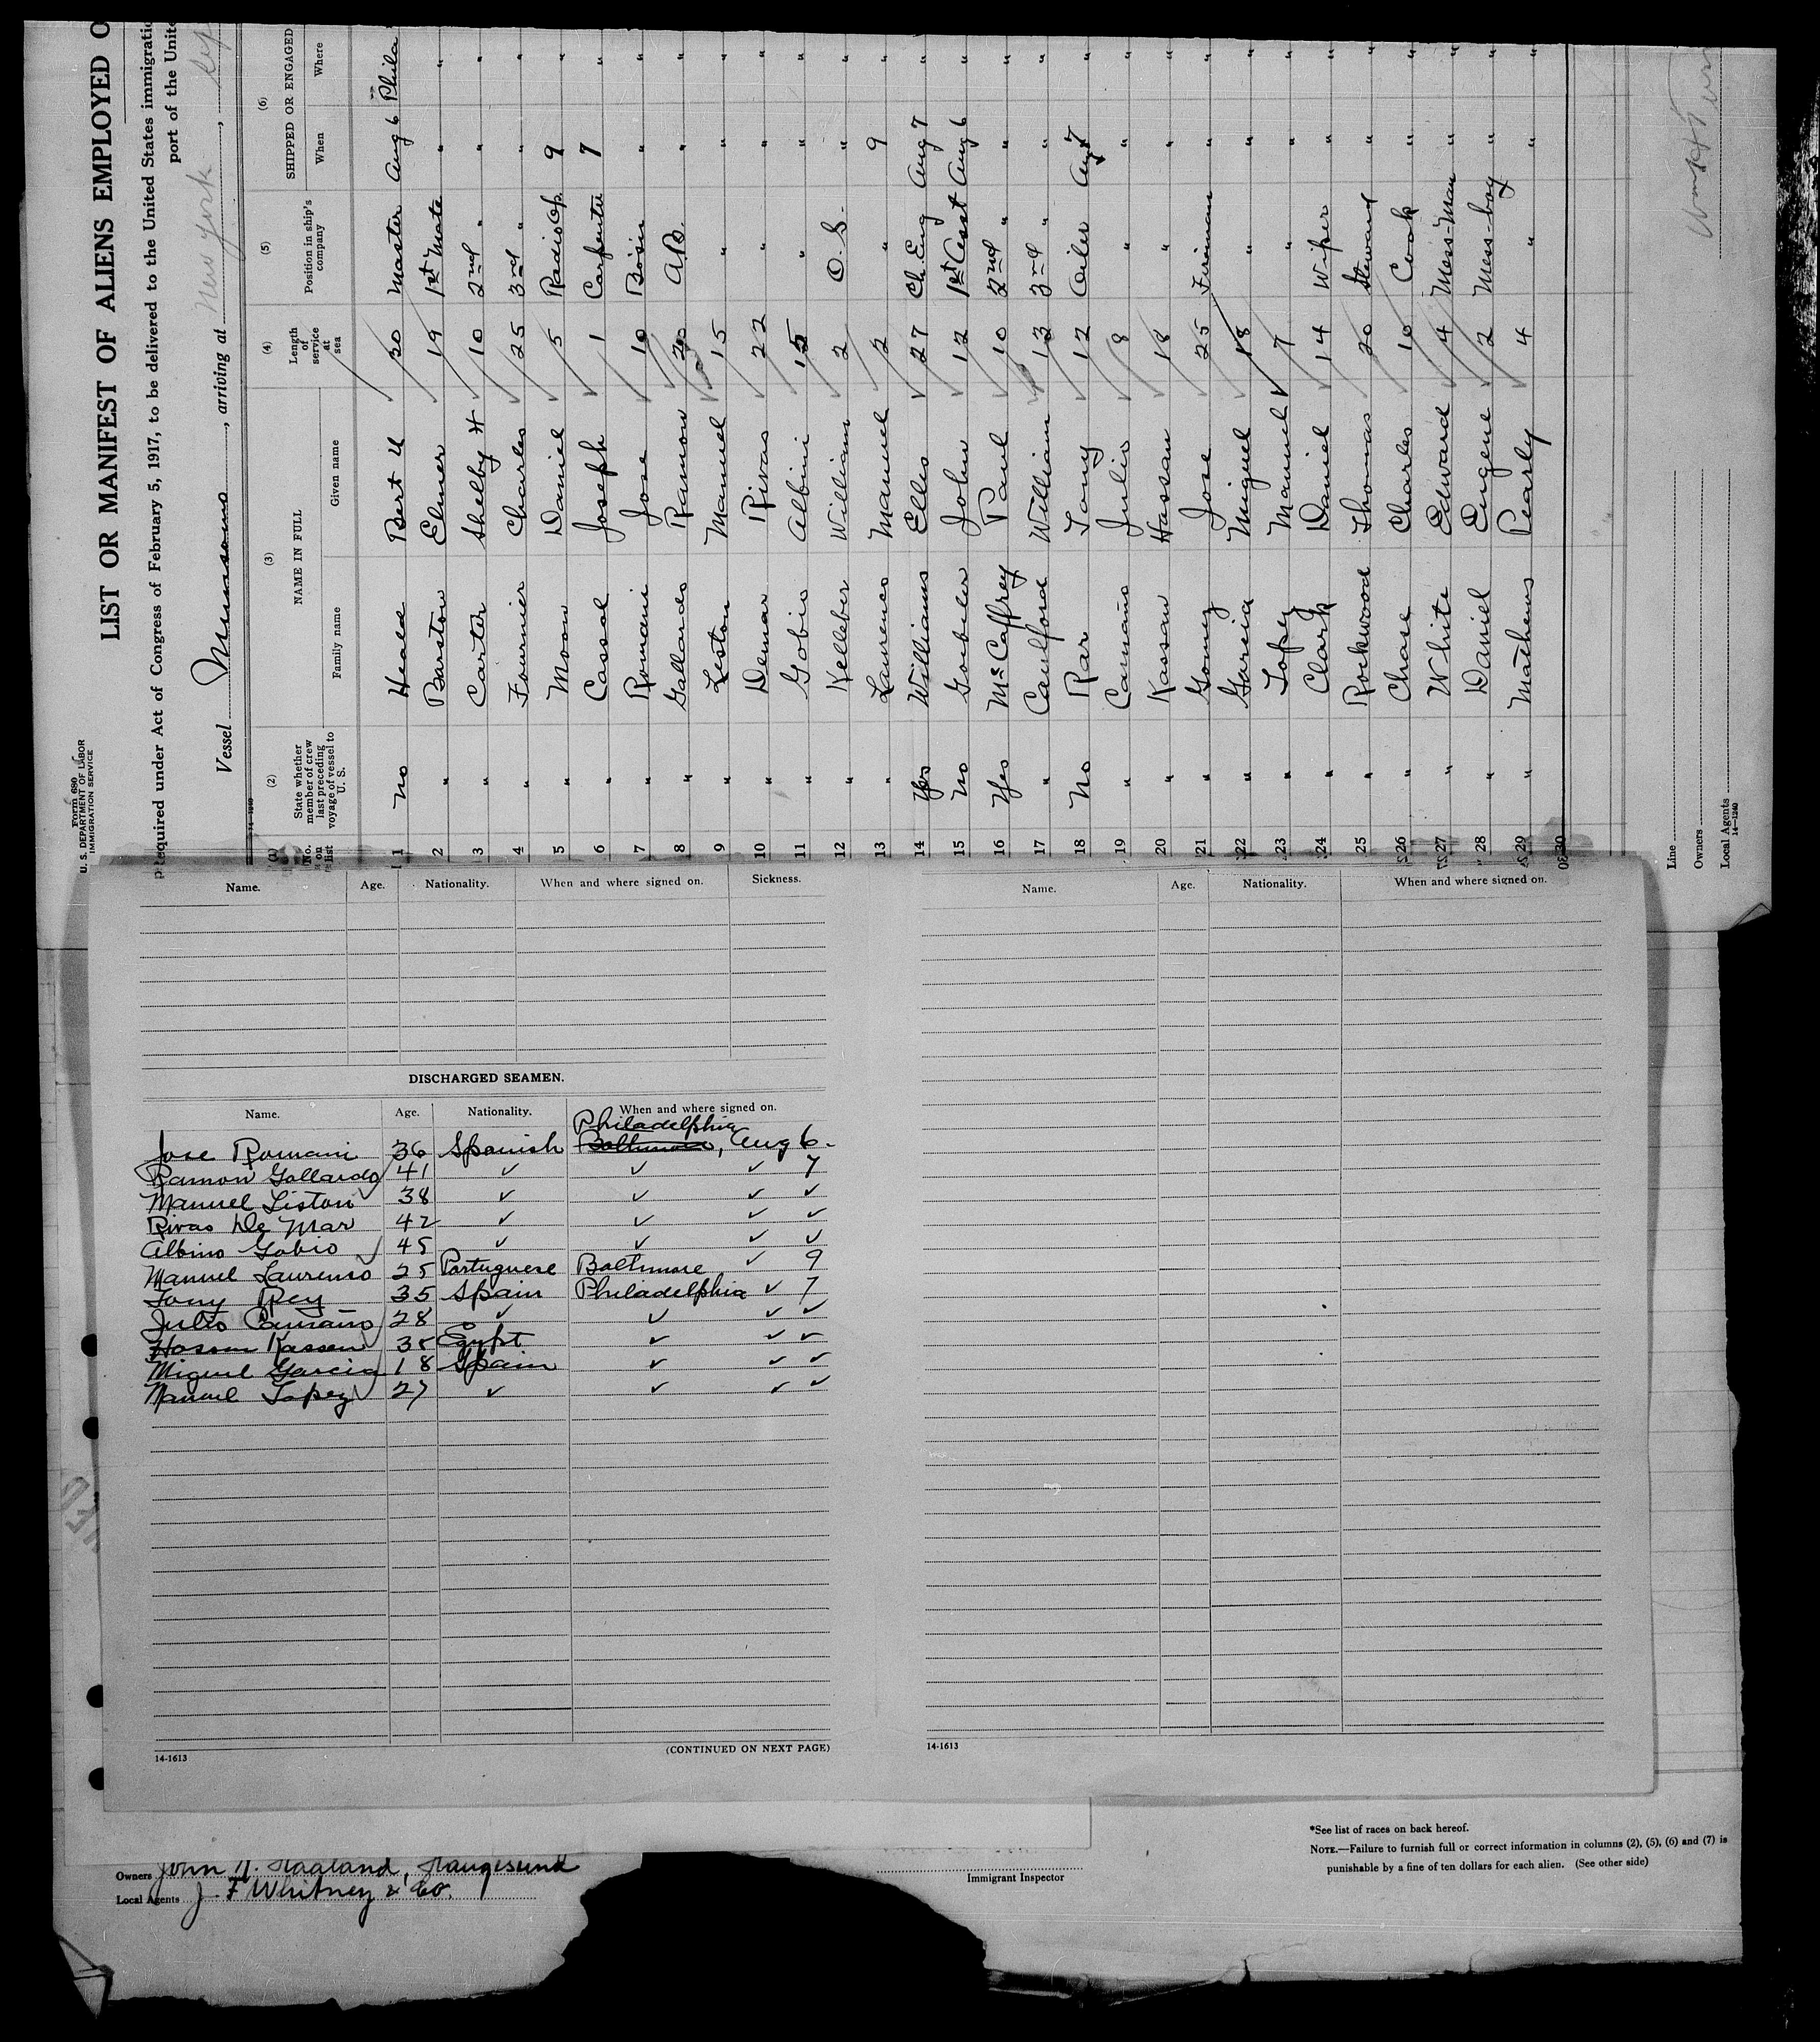 Form 680
U. S. DEPARTMENT OF LABOR
IMMIGRATION SERVICE
LIST OR MANIFEST OF ALIENS EMPLOYED O
Required under Act of Congress of February 5, 1917, to be delivered to the United States immigratio
port of the Unite
Vessel Munsomo, arriving at New York,
(1) (2) (3) (4) (5) (6)
No. on list State whether member of crew last preceding voyage of vessel to U. S. NAME IN FULL Length of service at sea Position in ship's company SHIPPED OR ENGAGED
Family name Given name When Where
1 No Heald Bert U 30 Master Aug 6 Phila
2 " Barston Elmer 19 1st Mate " "
3 " Carter Shelby H 10 2nd " " "
4 " Fournier Charles 25 3rd " " "
5 " Moon Daniel 5 Radio Op. 9 "
6 " Cassal Joseph 1 Carpenter 7 "
7 " Romani Jose 10 Bosin " "
8 " Gallardo Ramon 20 A.B. " "
9 " Liston Manuel 15 " " "
10 " Demar Rivas 22 " " "
11 " Gobio Albini 15 " " "
12 " Kelleber William 2 O.S. " "
13 " Laurenco Manuel 2 " 9 "
14 Yes Williams Ellis 27 Ch. Eng Aug 7 "
15 No John 12 1st Asst Aug 6 "
16 Yes McCaffrey Paul 10 2nd " " "
17 " Caulford William 13 3rd " " "
18 No Rar Tony 12 Oiler Aug 7 "
19 " Camaño Julio 8 " " "
20 " Kassan Hassan 18 " " "
21 " Gomez Jose 25 Fireman " "
22 " Garcia Miguel 18 " " "
23 " Lopez Manuel 7 " " "
24 " Clark Daniel 14 Wiper " "
25 " Rockwood Thomas 20 Steward " "
26 " Chase Charles 10 Cook " "
27 " White Edward 4 Mess-Man " "
28 " Daniel Eugene 2 Mess-boy " "
29 " Mathews Pearly 4 " " "
30
Line
Owners
Local Agents
14-1240
Name. Age. Nationality. When and where signed on. Sickness.
DISCHARGED SEAMEN.
Name. Age. Nationality. When and where signed on.
Philadelphia
Jose Romani 36 Spanish Baltimore, Aug 6.
Ramon Gallardo 41 ✓ ✓ ✓ 7
Manuel Liston 38 ✓ ✓ ✓ ✓
Rivas De Mar 42 ✓ ✓ ✓ ✓
Albino Gobio 45 ✓ ✓ ✓ ✓
Manuel Laurenso 25 Portuguese Baltimore ✓ 9
Tony Rey 35 Spain Philadelphia ✓ 7
Julio Camaño 28 ✓ ✓ ✓ ✓
Hassan Kassan 35 Egypt ✓ ✓ ✓
Miguel Garcia 18 Spain ✓ ✓ ✓
Manuel Lopez 27 ✓ ✓ ✓ ✓
14-1613 (CONTINUED ON NEXT PAGE)
Name. Age. Nationality. When and where signed on.
14-1613
Owners John K. Haaland, Haugesund
Local Agents J. F Whitney & Co.
Immigrant Inspector
*See list of races on back hereof.
NOTE.—Failure to furnish full or correct information in columns (2), (5), (6) and (7) is
punishable by a fine of ten dollars for each alien. (See other side)